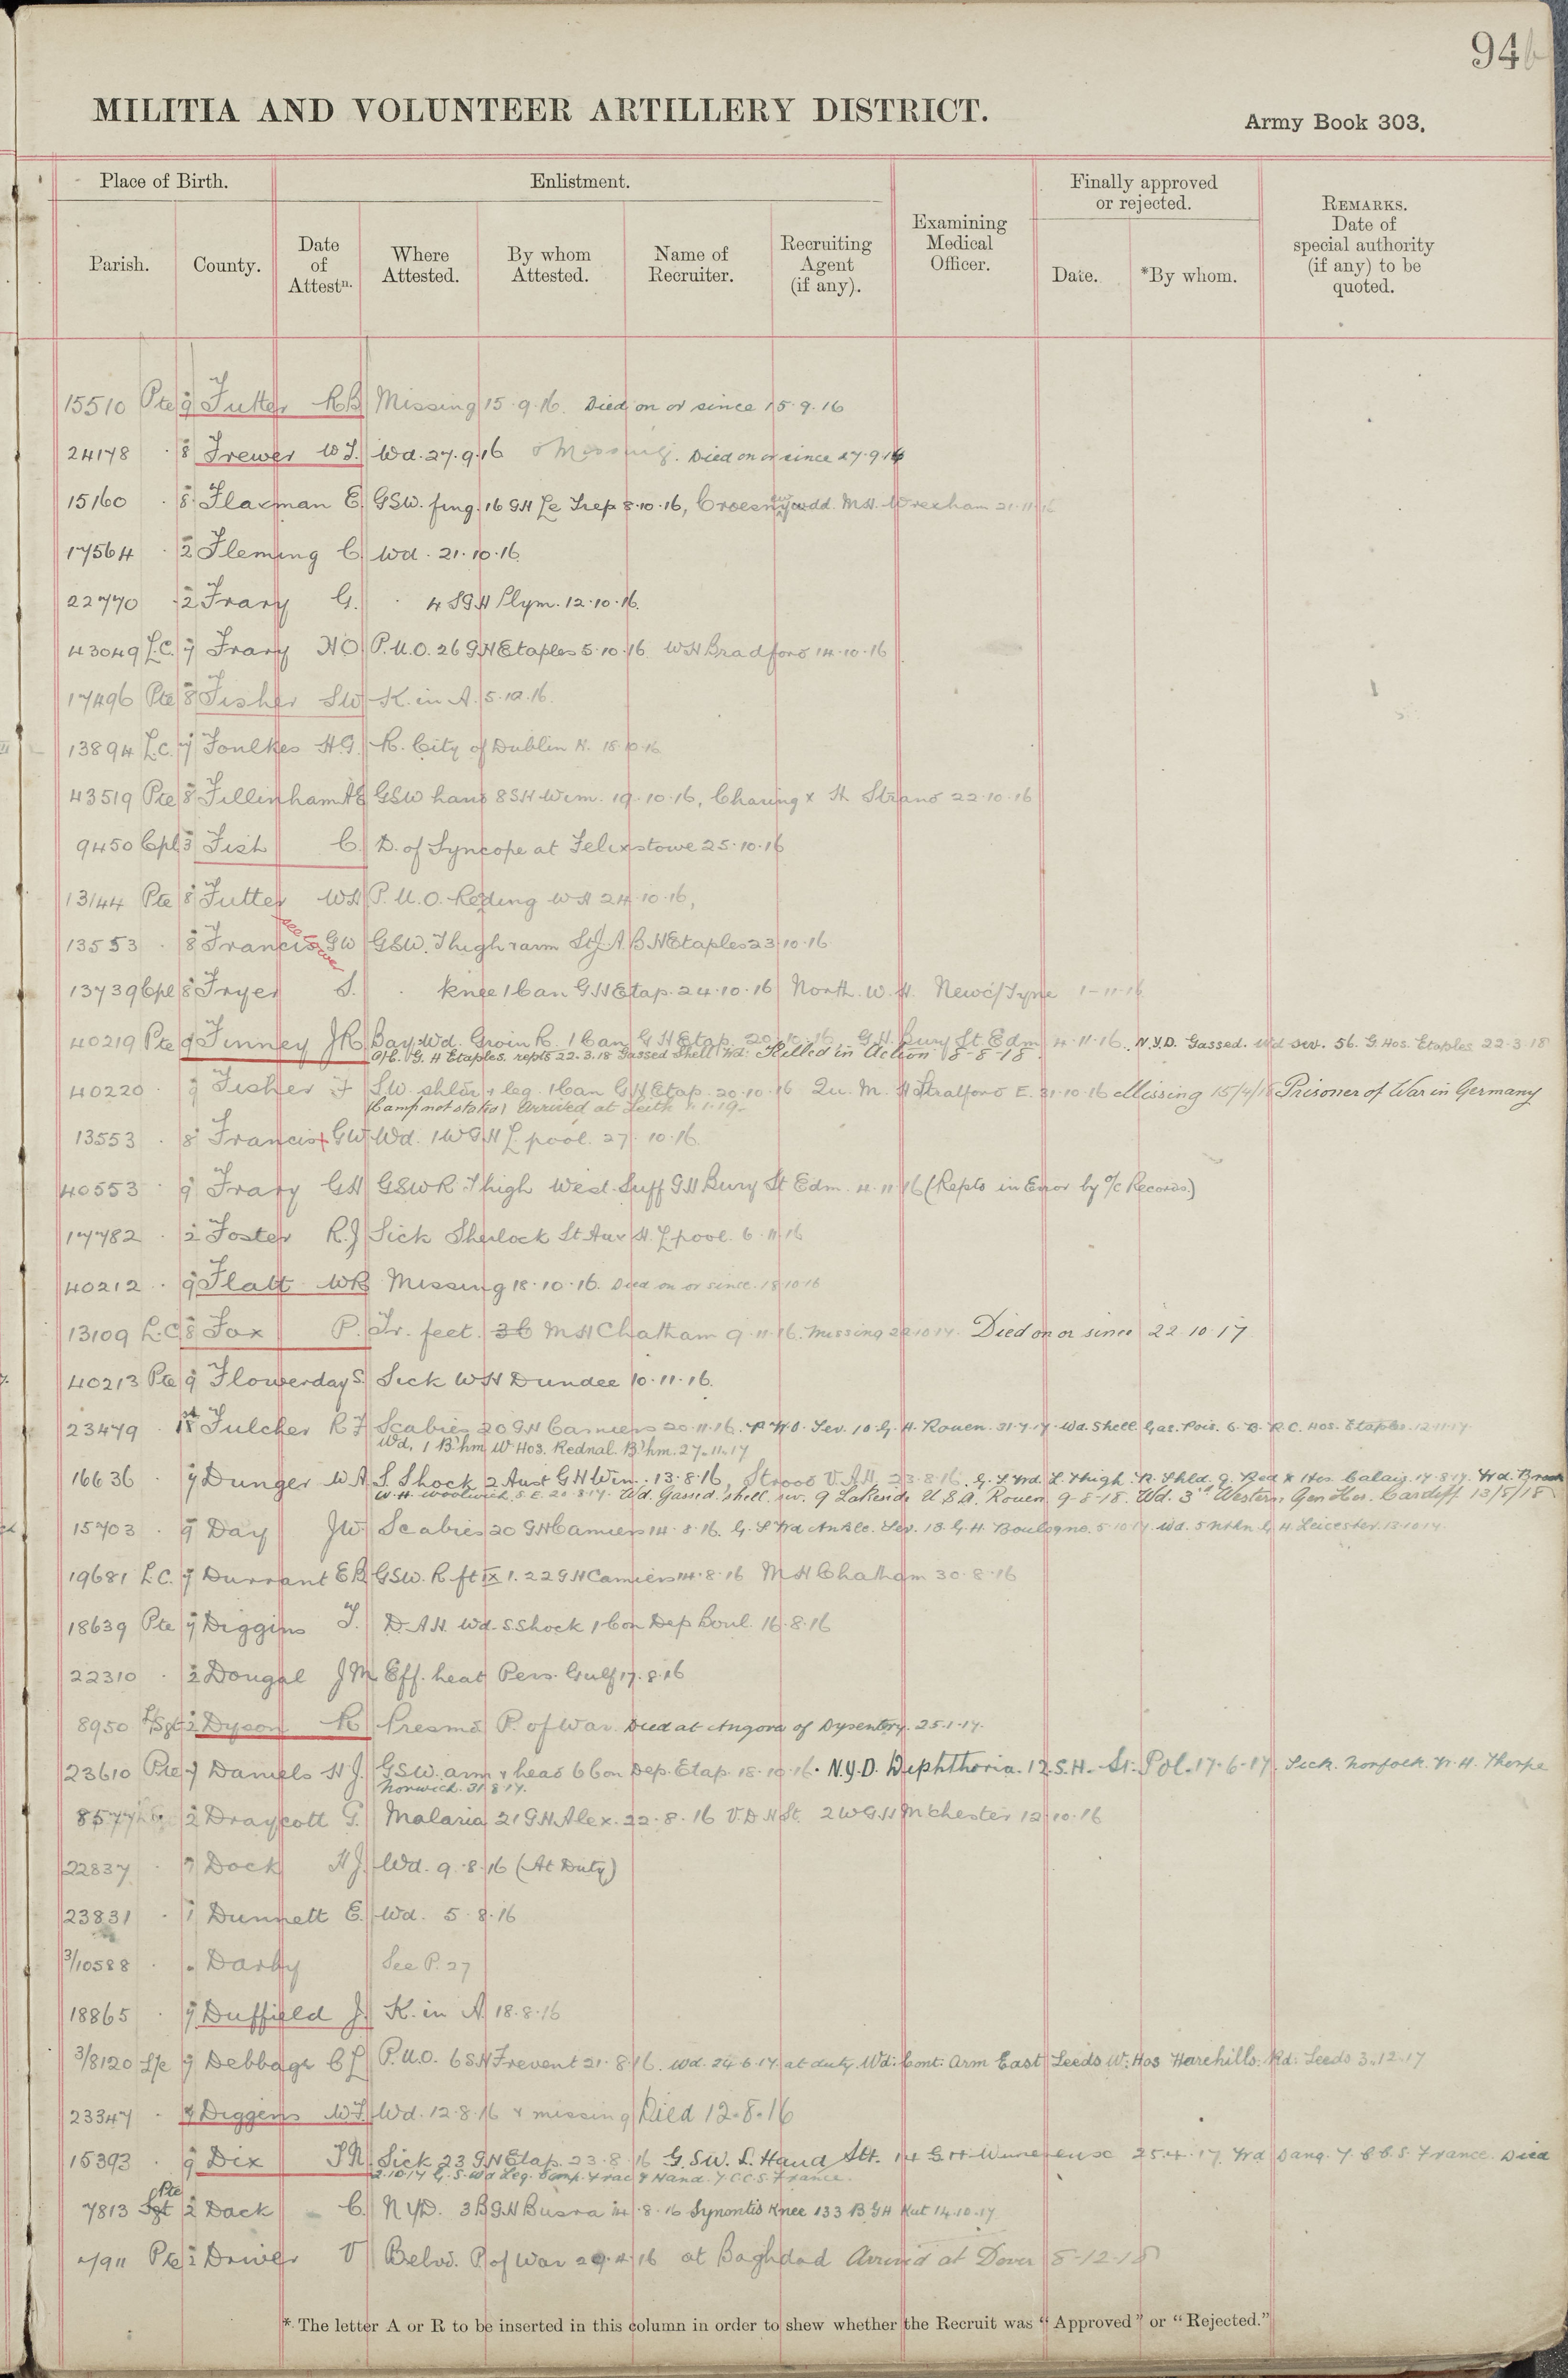 94
MILITIA AND VOLUNTEER ARTILLERY DISTRICT.
Army Book 303.
Place of Birth.
Enlistment.
Finally approved or rejected.
Parish.
County.
Date of Attestn.
Where Attested.
By whom Attested.
Name of Recruiter.
Recruiting Agent (if any).
Examining Medical Officer.
Date.
*By whom.
REMARKS. Date of special authority (if any) to be quoted.
15510 Pte 9 Futter RB Missing 15.9.16. Died on or since 15.9.16
24178 . 8 Frewer W J. Wd. 27.9.16 & Missing. Died on or since 27.9.16
15160 . 8 Flaxman E. GSW. fing. 16 GH Le Trep 8.10.16, Croesnywdd. MH. Wrexham 21.11.16
17564 . 2 Fleming C. Wd. 21.10.16
22770 . 2 Frary G. . 4 SGH Plym. 12.10.16.
43049 L.C. 7 Frary HO P.U.O. 26 GH Etaples 5.10.16 WH Bradford 14.10.16
17496 Pte 8 Fisher SW K. in A. 5.10.16.
13894 L.C. 7 Foulkes H.G. R. City of Dublin H. 18.10.16
43519 Pte 8 Fillinham AE GSW hand 8 SH Wim. 19.10.16, Charing x H Strand 22.10.16
9450 Cpl 3 Fish C. D. of Syncope at Felixstowe 25.10.16
13144 Pte 8 Futter WH P.U.O. Reding WH 24.10.16,
13553 . 8 Francis GW GSW. Thigh & arm St J A B H Etaples 23.10.16
see lower
13739 Cpl 8 Fryer S. . knee 1 Can GH Etap. 24.10.16 North. W. H. Newc/Tyne 1-11-16
40219 Pte 9 Finney JR Bay. Wd. Groin R. 1 Can G H Etap. 20.10.16 G.H. Bury St Edm 4.11.16. N.Y.D. Gassed. Wd Sev. 56. G. Hos. Etaples 22-3-18
O/C. G. H Etaples. repts 22.3.18 Gassed Shell Wd: Killed in Action 8-8-18
40220 . 9 Fisher F SW. shldr & leg. 1 Can GH Etap. 20.10.16 Qu. M. H Stratford E. 31.10.16 Missing 15/4/18 Prisoner of War in Germany
(Camp not stated) Arrived at Leith 1.1.19.
13553 . 8 Francis x GW Wd. 1 W G H L'pool. 27.10.16
40553 . 9 Frary GH GSW R Thigh West. Suff GH Bury St Edm. 4.11.16 (Reptd in Error by O/C Records)
17782 . 2 Foster R.J Sick Sherlock St Aux H. L'pool 6.11.16
40212 . 9 Flatt WR Missing 18.10.16. Died on or since. 18.10.16
13109 L.C 8 Fox P. Tr. feet. MH Chatham 9.11.16. Missing 22.10.17. Died on or since 22.10.17
40213 Pte 9 Flowerday S. Sick WH Dundee 10.11.16.
23479 . Fulcher R F Scabies 20 GH Camiers 20.11.16. P.U.O. Sev. 10 G. H. Rouen. 31.7.17. Wd. Shell Gas. Pois. 6. B. R.C. Hos. Etaples. 12.11.17
Wd, 1 B'hm. W. Hos. Rednal. B'hm. 27.11.17
16636 . 7 Dunger W A S. Shock 2 Aust G H Wim. 13.8.16, Strood V.A.H. 23.8.16. G. S. Wd. L. Thigh. R. Shld. 9. Red x Hos. Calais. 17.8.17. Wd. Brook
W. H. Woolwich, S.E. 20.8.17. Wd. Gassed, shell, sev. 9 Lakeside U.S.A. Rouen. 9-5-18. Wd. 3rd Western Gen Hos. Cardiff 13/5/18
15703 . 9 Day JW Scabies 20 GH Camiers 14.8.16. G. S Wd Ankle. Sev. 13 G.H. Boulogne. 5.10.17. Wd. 5 Nthn G H. Leicester. 13.10.17.
19681 L.C. 7 Durrant EB GSW. R. ft IX 1. 22 GH Camiers 14.8.16 MH Chatham 30.8.16
18639 Pte 7 Diggins T. D.A.H. Wd. S Shock 1 Con Dep Boul. 16.8.16
22310 . 2 Dougal J M Eff. heat Pers. Gulf 17.8.16
8950 L/Sgt 2 Dyson R Presmd P. of War. Died at Angora of Dysentery. 25.1.17.
23610 Pte 7 Daniels H J. GSW. arm & head 6 Con Dep. Etap. 18.10.16. N.Y.D. Diphtheria. 12. S.H. St. Pol. 17.6.17. Sick. Norfolk W. H. Thorpe
Norwich. 31.8.17.
8577 2 Draycott G. Malaria 21 GH Alex. 22.8.16 V.D.H St. 2 WGH Mchester 12.10.16
22837 . 7 Dock H J. Wd. 9.8.16 (At Duty)
23831 . 1 Dunnett E. Wd. 5.8.16
3/10588 . . Darby See P. 27
18865 . 7 Duffield J. K. in A. 18.8.16
3/8120 L/c 9 Debbage C L P.U.O. 6 SH Frevent 21.8.16. Wd. 24.6.17. at duty. Wd: Cont: Arm East Leeds W: Hos Harehills: Rd: Leeds 3.12.17
23347 . 9 Diggens WF Wd. 12.8.16 & missing Died 12.8.16
15393 . 9 Dix Sick 23 GH Etap. 23.8.16 G.S.W. L. Hand Slt. 14 G H Wimereuse 25.4.17. Wd Dang. 7. C.C.S. France. Died
2.10.17 G. S. Wd Leg. Comp. Frac & Hand. 7 C.C.S. France.
7813 Sgt Pte 2 Dack C. N Y D. 3 B G H Busra 14.8.16 Synovitis Knee 133 B G H Kut 14.10.17
Pte 2 Driver V Belvd. P of War 29.4.16 at Baghdad Arrived at Dover 8-12-18
* The letter A or R to be inserted in this column in order to shew whether the Recruit was "Approved" or "Rejected."